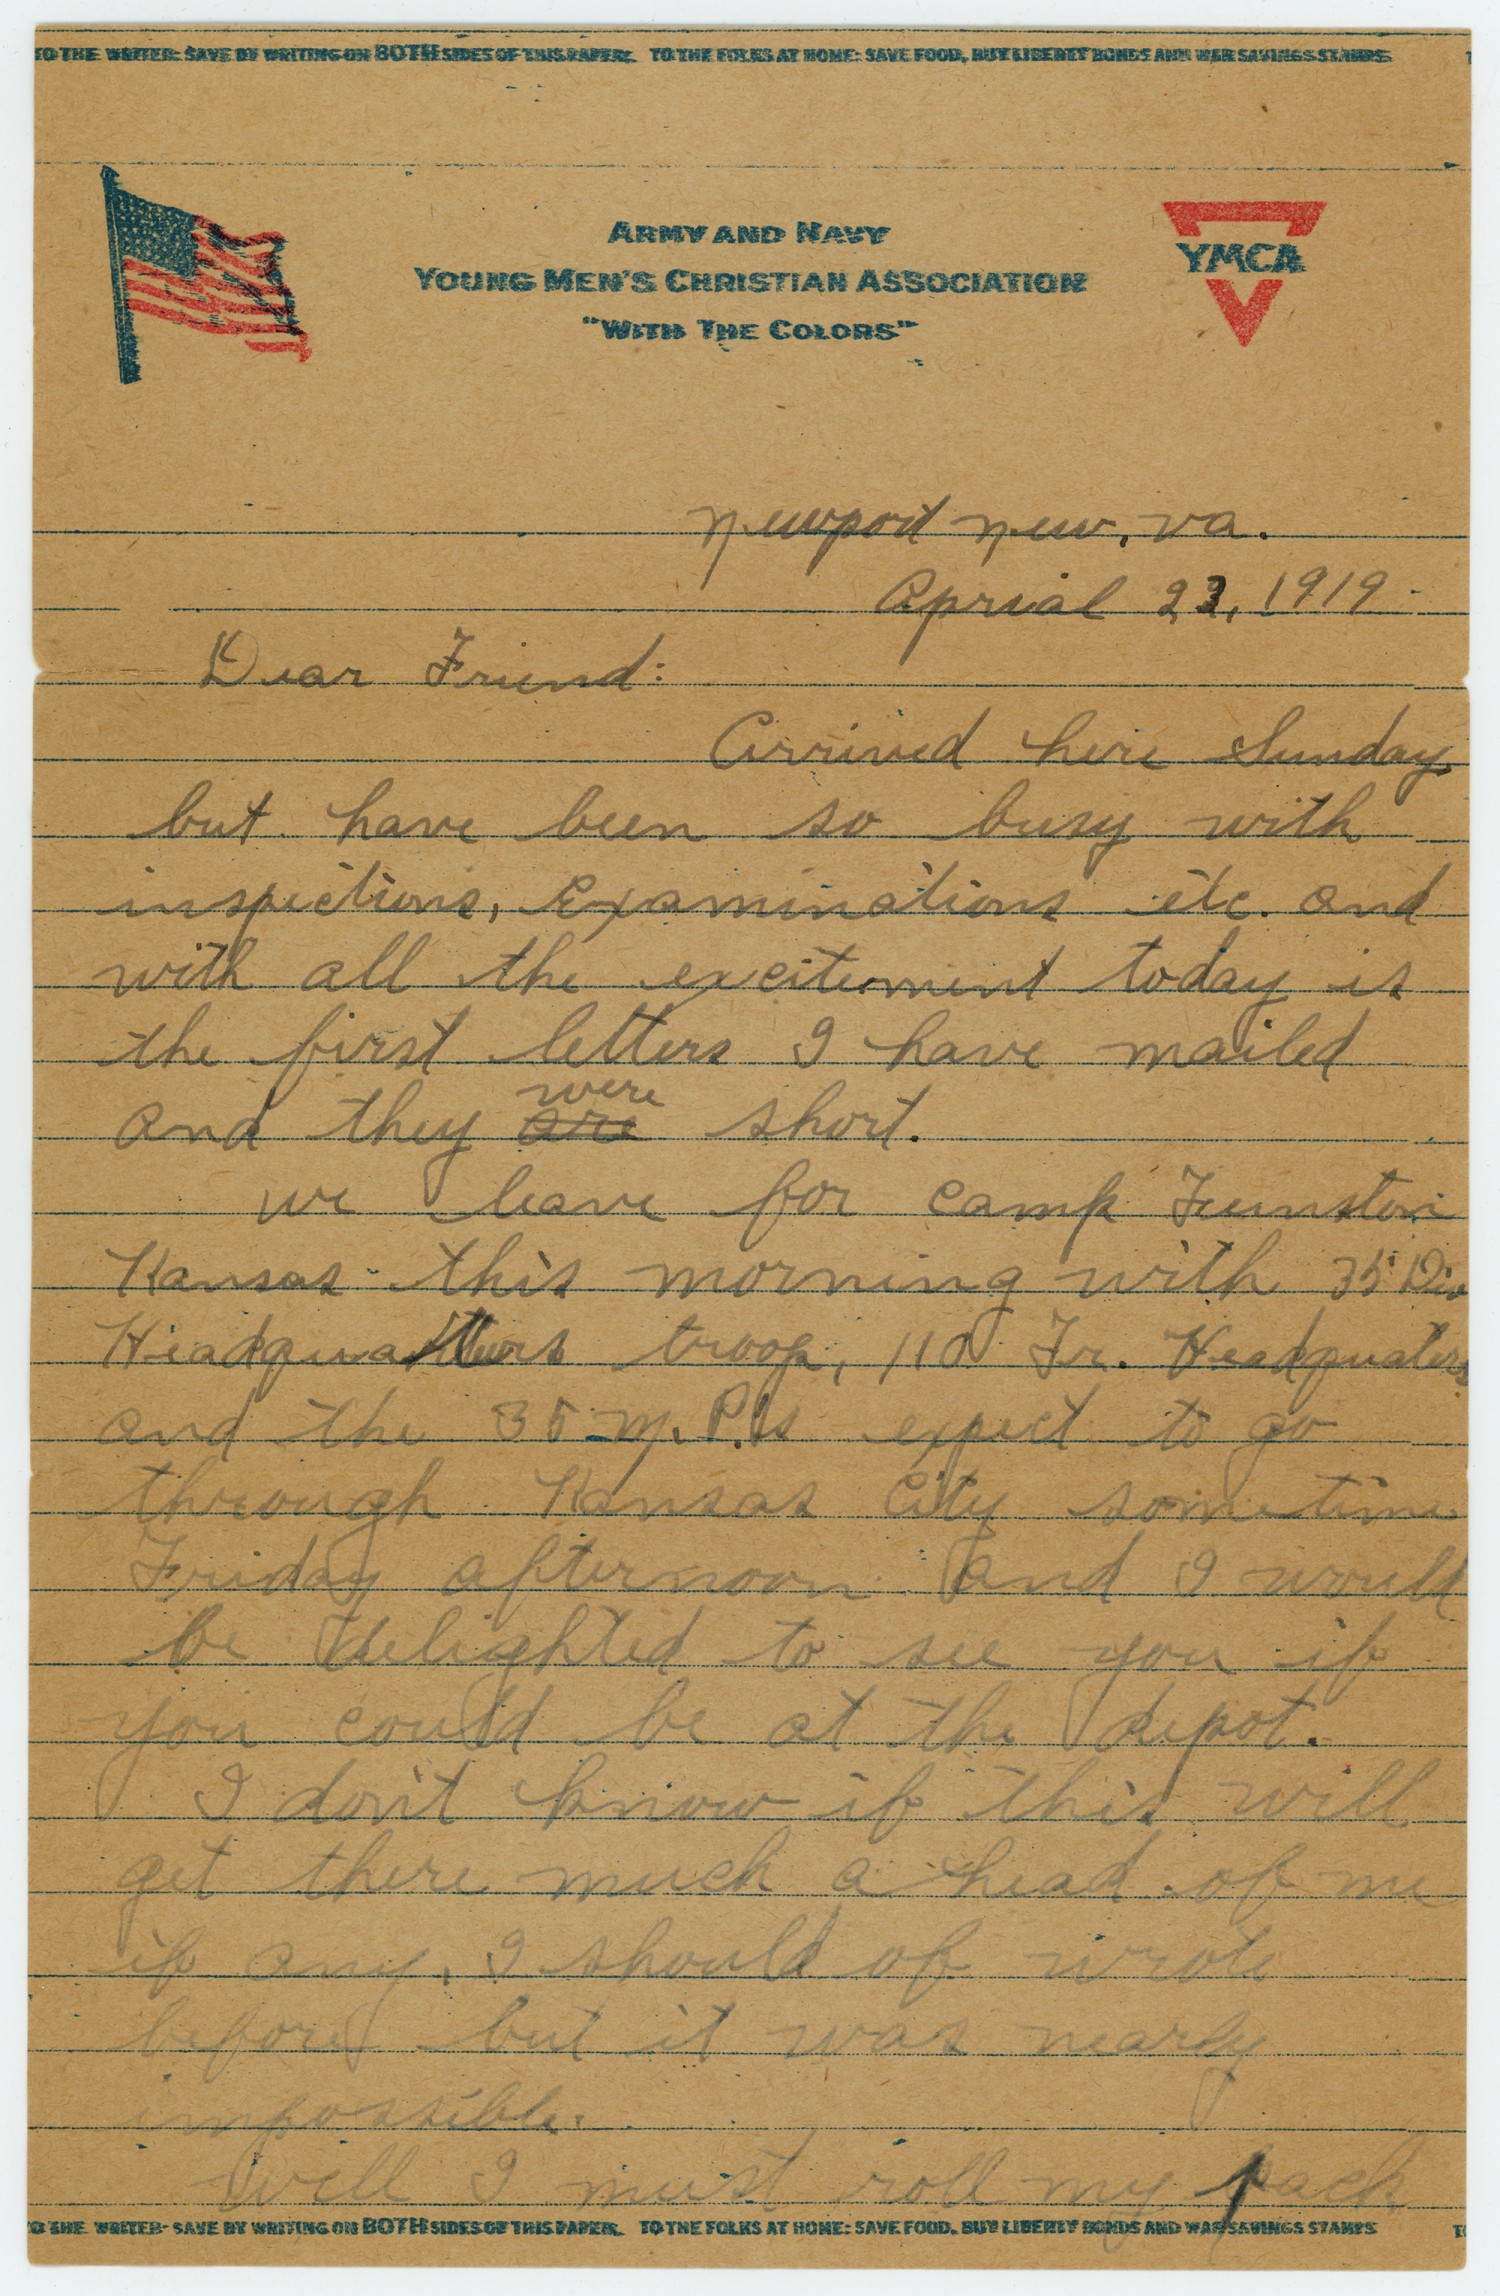 TO THE WRITER: SAVE BY WRITING ON BOTH SIDES OF THIS PAPER. TO THE FOLKS AT HOME: SAVE FOOD, BUY LIBERTY BONDS AND WAR SAVINGS STAMPS
ARMY AND NAVY
YOUNG MEN'S CHRISTIAN ASSOCIATION
"WITH THE COLORS"
YMCA
Newport New, Va.
Aprial 23, 1919
Dear Friend:
Arrived here Sunday
but have been so busy with
inspections, examinations etc. and
with all the excitement today is
the first letters I have mailed
and they are were short.
we leave for Camp Funston
Kansas this morning with 35 Div
Headquarters troop, 110 Tr. Headquaters
and the 35 M.P.'s expect to go
through Kansas City sometime
Friday afternoon and I would
be delighted to see you if
you could be at the depot.
I don't know if this will
get there much a head of me
if any, I should of wrote
before but it was nearly
impossible.
Well I must roll my pack
TO THE WRITER: SAVE BY WRITING ON BOTH SIDES OF THIS PAPER. TO THE FOLKS AT HOME: SAVE FOOD, BUY LIBERTY BONDS AND WAR SAVINGS STAMPS